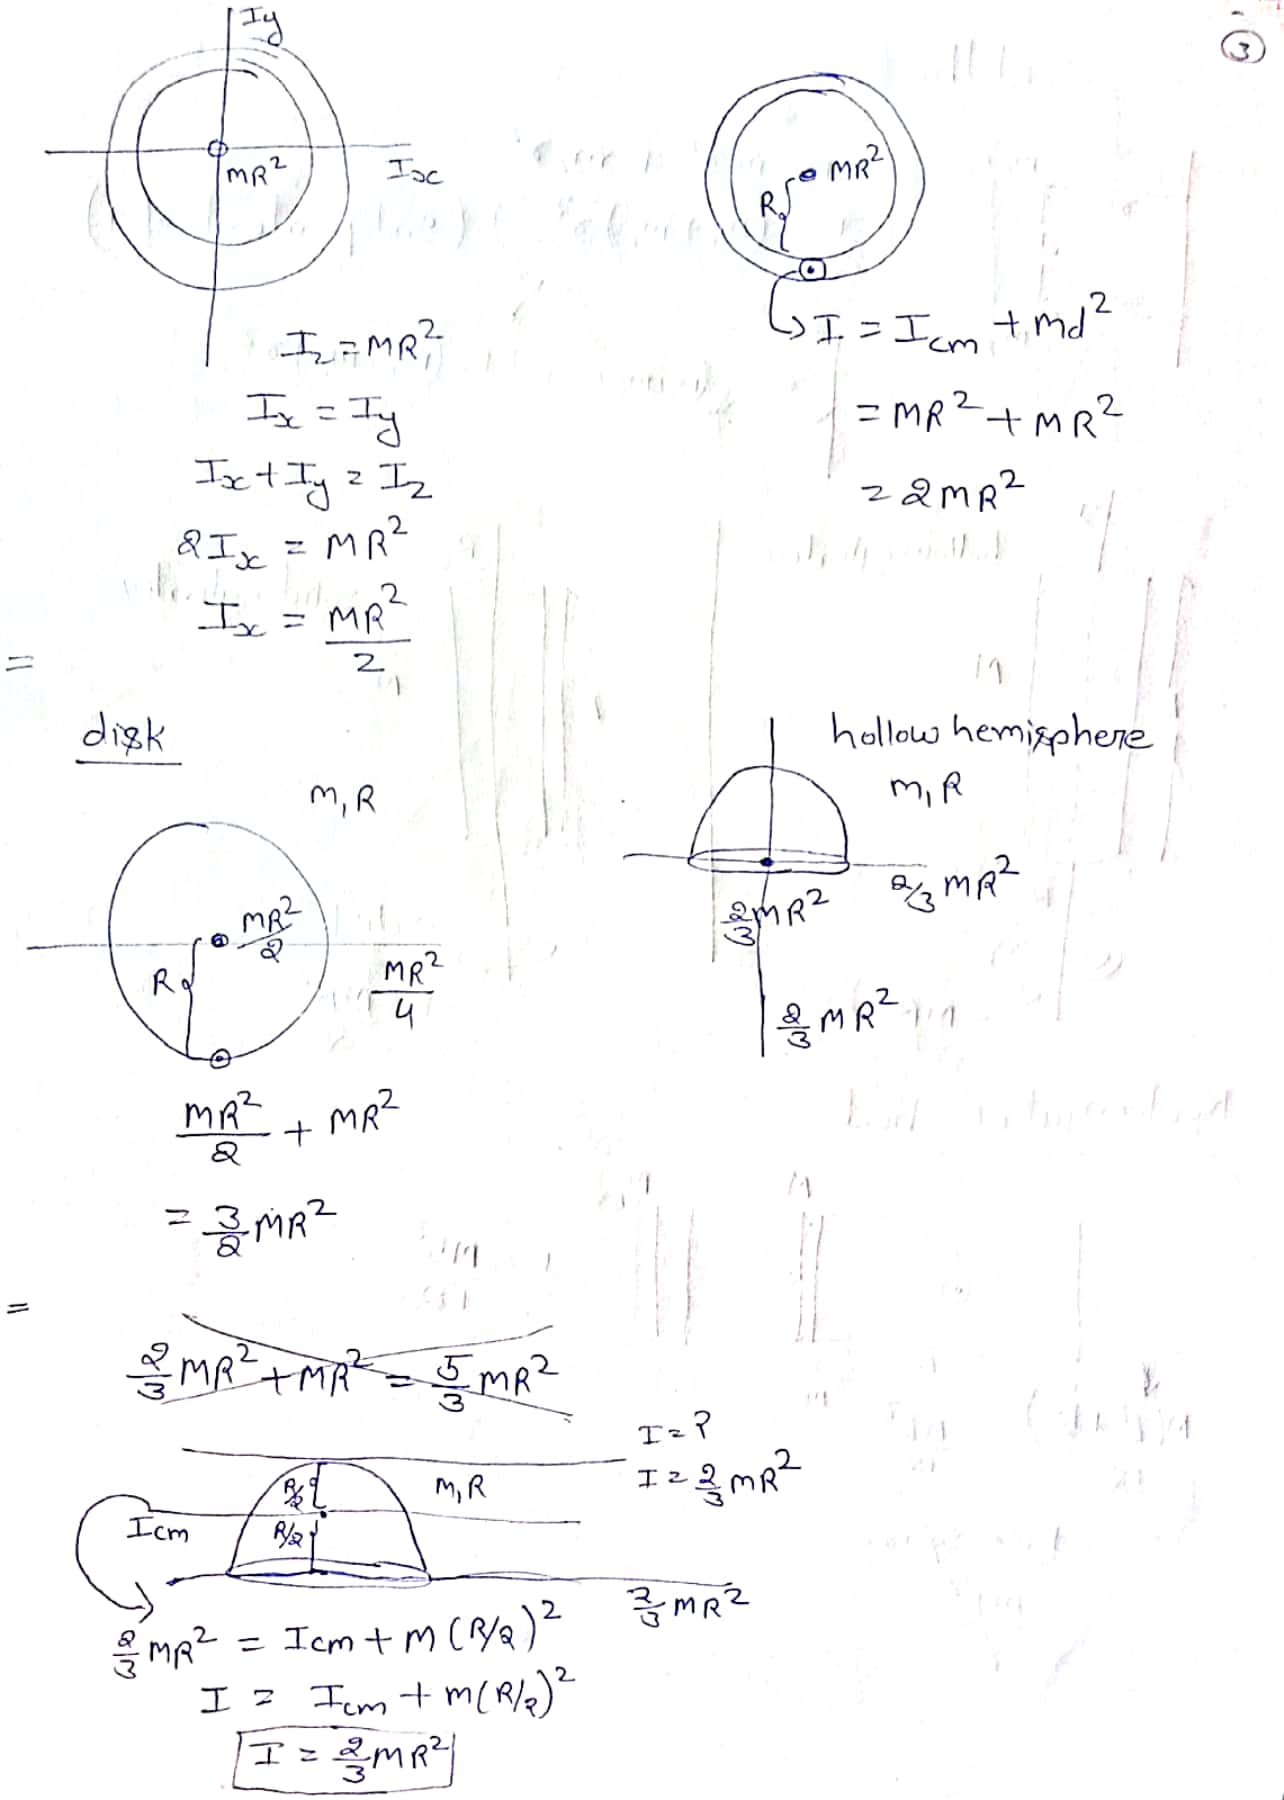 3
Iy
MR²
Ix
MR²
R
I = Icm + md²
= MR² + MR²
= 2MR²
Iz = MR²
Ix = Iy
Ix + Iy = Iz
2Ix = MR²
Ix = MR²/2
=
disk
M, R
MR²/2
R
MR²/4
MR²/2 + MR²
= 3/2 MR²
hollow hemisphere
m, R
2/3 MR²
2/3 MR²
2/3 MR²
=
2/3 MR² + MR² = 5/3 MR²
I = ?
I = 2/3 MR²
R/2
M, R
Icm
R/2
2/3 MR²
2/3 MR² = Icm + m(R/2)²
I = Icm + m(R/2)²
I = 2/3 MR²